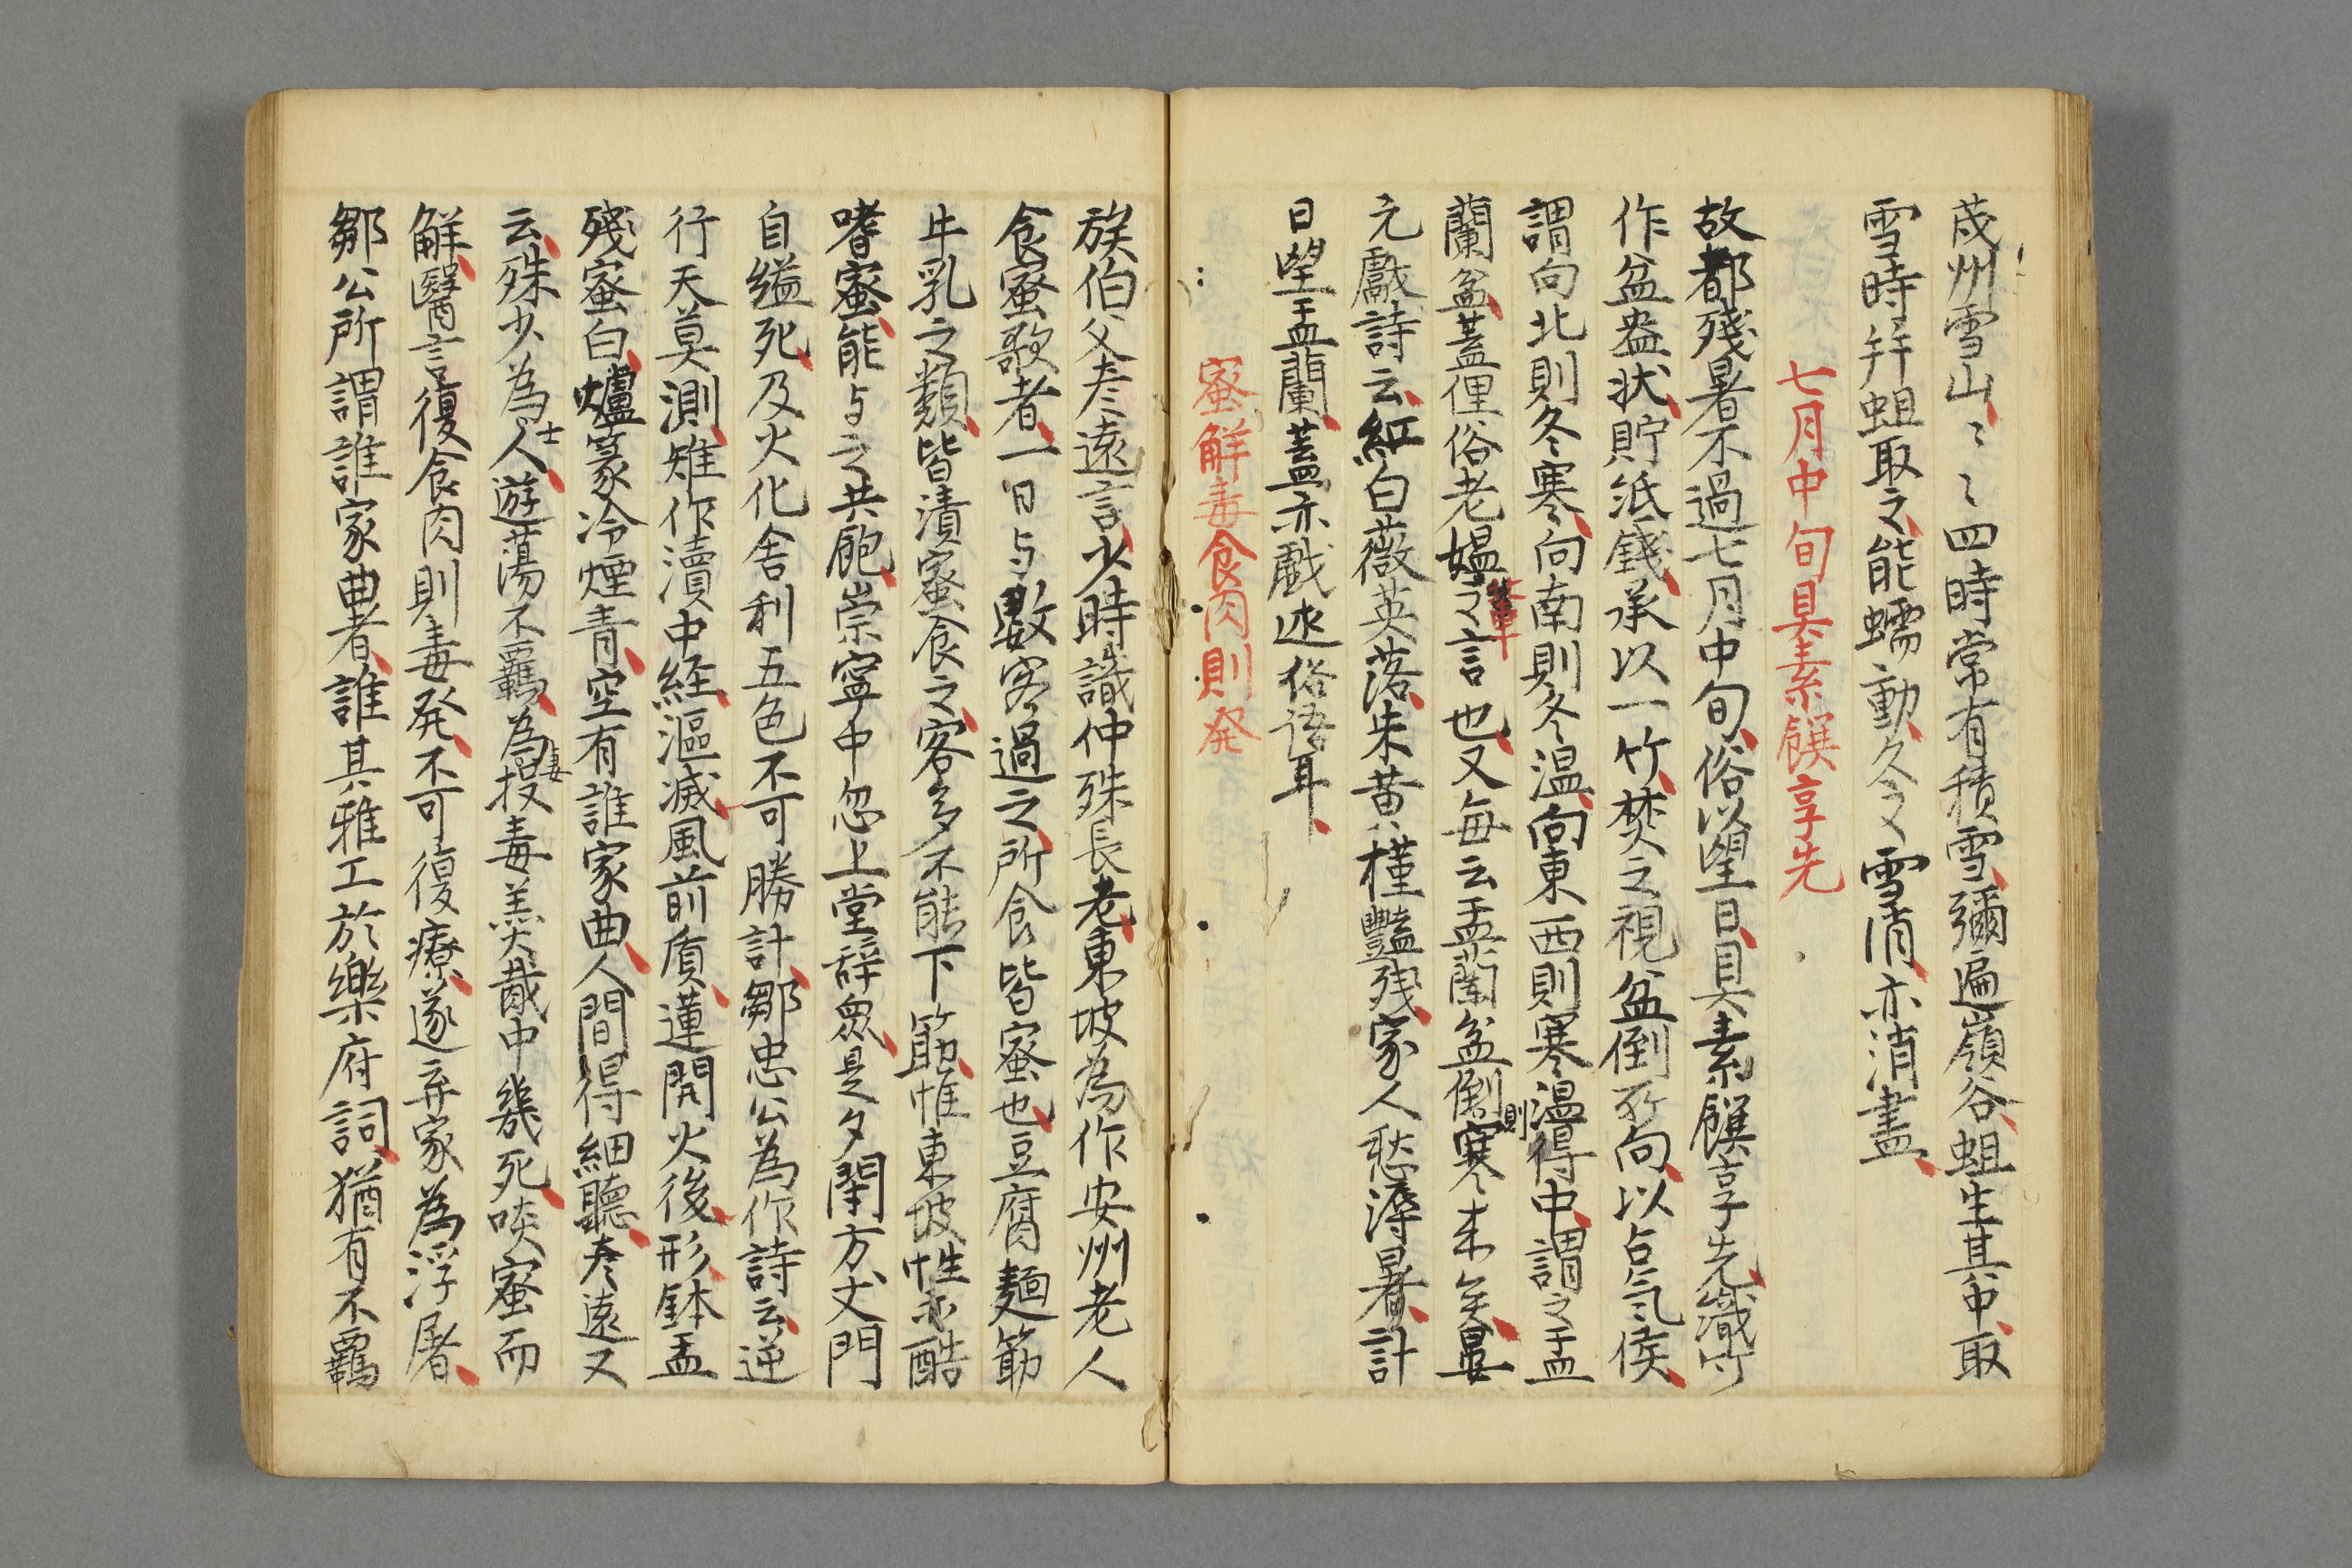 茂州雪山〻〻四時常有積雪彌遍嶺谷蛆生其中取
雪時并蛆取之能蠕動久之雪消亦消盡
七月中旬具素饌享先
故都殘暑不過七月中旬俗以望日具素饌享先織竹
作盆盎状貯紙錢承以一竹焚之視盆倒所向以占氣候
謂向北則冬寒向南則冬温向東西則寒温得中謂之盂
蘭盆蓋俚俗老媪輩之言也又毎云盂蘭盆倒則寒来矣晏
元獻詩云紅白薇英落朱黄槿豔残家人愁溽暑計
日望盂蘭蓋亦戯述俗語耳
蜜解毒食肉則発
族伯父彦遠言少時識仲殊長老東坡為作安州老人
食蜜歌者一日与數客過之所食皆蜜也豆腐麺筋
牛乳之類皆漬蜜食之客多不能下筯惟東坡性亦酷
嗜蜜能与之共飽崇寧中忽上堂辞衆是夕閉方丈門
自縊死及火化舎利五色不可勝計鄒忠公為作詩云逆
行天莫測雉作瀆中経漚滅風前質蓮開火後形鉢盂
殘蜜白爐篆冷煙青空有誰家曲人間得細聽彦遠又
云殊少為士人遊蕩不羈為妻投毒羹胾中幾死啖蜜而
解醫言復食肉則毒発不可復療遂弃家為浮屠
鄒公所謂誰家曲者誰其雅工於樂府詞猶有不羈